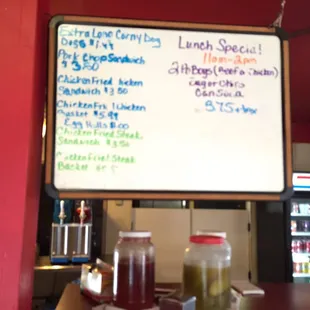 Extra Long Corny Dog
Dogs $1.49
Pork Chop Sandwich
$3.50
Chicken Fried Chicken
Sandwich $3.50
Chicken Fried Chicken
Basket $5.99
Egg Rolls $1.00
Chicken Fried Steak
Sandwich $3.50
Chicken Fried Steak
Basket
Lunch Special!
11am-2pm
2 Po Boys (Beef or Chicken)
Can Soda
$3.75 + tax